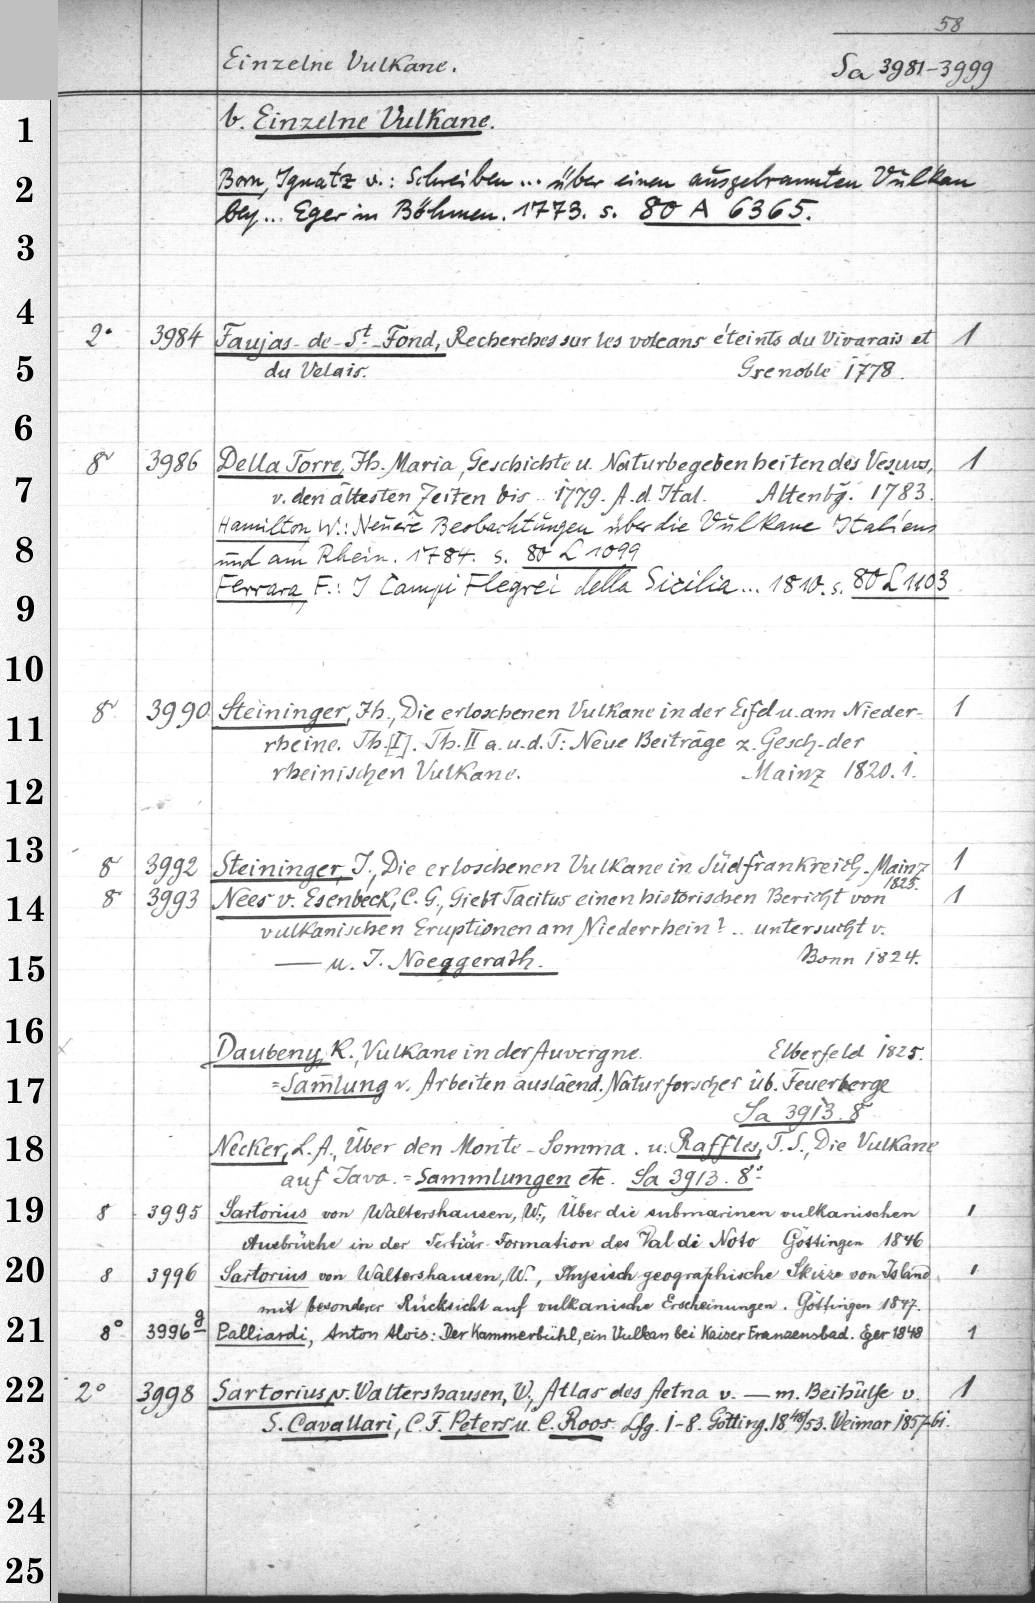 58
Einzelne Vulkane. Sa 3981-3999
1 b. Einzelne Vulkane.
2 Born, Ignatz v.: Schreiben... über einen ausgebrannten Vulkan
bey... Eger in Böhmen. 1773. s. 80 A 6365.
3
4
2° 3984 Faujas-de-St-Fond, Recherches sur les volcans éteints du Vivarais et 1
5 du Velais. Grenoble 1778.
6
8° 3986 Della Torre, Jh. Maria, Geschichte u. Naturbegebenheiten des Vesuvs, 1
7 v. den ältesten Zeiten bis .. 1779. A. d. Ital. Altenbg. 1783.
Hamilton W.: Neuere Beobachtungen über die Vulkane Italiens
8 und am Rhein. 1784. s. 80 L 1099
Ferrara, F.: I Campi Flegrei della Sicilia... 1810. s. 80 L 1103
9
10
8° 3990 Steininger, Jh., Die erloschenen Vulkane in der Eifel u. am Nieder- 1
11 rheine. Th. [I]. Th. II a. u. d. T: Neue Beiträge z. Gesch. der
rheinischen Vulkane. Mainz 1820. 1.
12
13
8° 3992 Steininger, J., Die erloschenen Vulkane in Südfrankreich. Mainz 1
1823.
14 8° 3993 Nees v. Esenbeck, C. G., Giebt Tacitus einen historischen Bericht von 1
vulkanischen Eruptionen am Niederrhein? .. untersucht v.
15 — u. J. Noeggerath. Bonn 1824.
16
Daubeny, K., Vulkane in der Auvergne. Elberfeld 1825.
17 =Sam̅lung v. Arbeiten ausläend. Naturforscher üb. Feuerberge
Sa 3913. 8°
18 Necker, L. A., Über den Monte-Somma. u. Raffles, T. S., Die Vulkane
auf Java. = Sammlungen etc. Sa 3913. 8°.
19 8 3995 Sartorius von Waltershausen, W., Über die submarinen vulkanischen 1
Ausbrüche in der Tertiär-Formation des Val di Noto Göttingen 1846
20 8 3996 Sartorius von Waltershausen, W., Physisch geographische Skizze von Island 1
mit besonderer Rücksicht auf vulkanische Erscheinungen. Göttingen 1847.
21 8° 3996g Palliardi, Anton Alois: Der Kammerbühl, ein Vulkan bei Kaiser Franzensbad. Eger 1848 1
22 2° 3998 Sartorius v. Waltershausen, W., Atlas des Aetna v. — m. Beihülfe v. 1
S. Cavallari, C. F. Peters u. C. Roos. Lfg. 1-8. Götting. 1848/53. Weimar 1857-61.
23
24
25